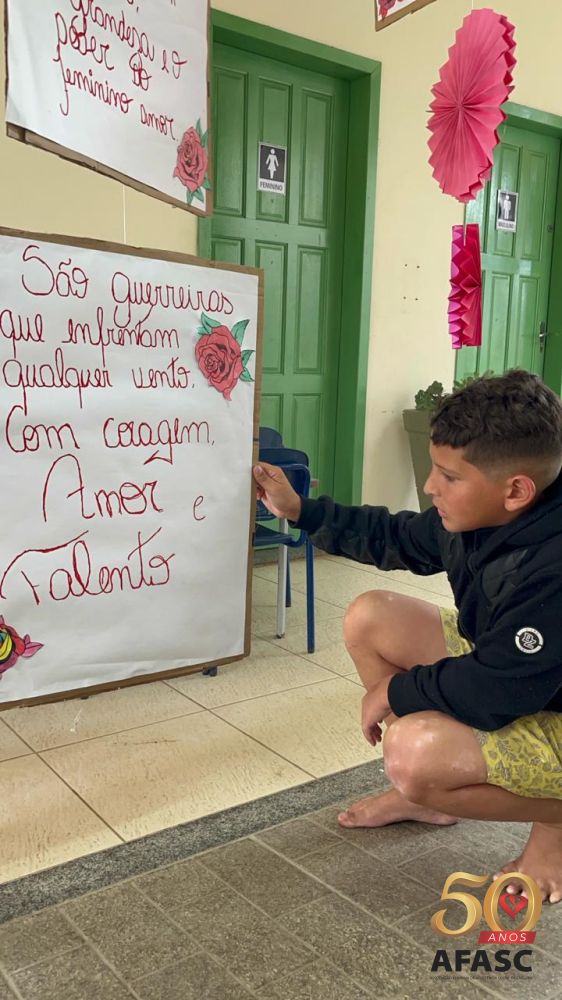 grandeza e o
poder do
feminino amor
FEMININO
MASCULINO
São guerreiras
que enfrentam
qualquer vento.
Com coragem,
Amor e
Talento
50
ANOS
AFASC